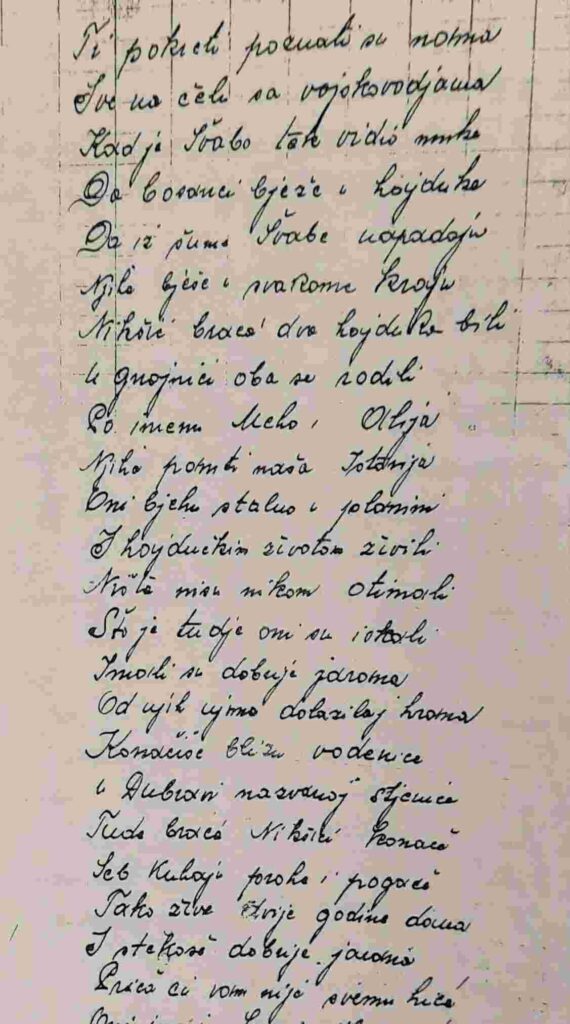 Ti pokreti poznati su nama
Sve na čelu sa vojskovodjama
Kad je Švabo tak vidio muke
Da bosanci bježe u hajduke
Da iz šume Švabe napadaju
Njih bješe u svakome kraju
Nikšić braća dva hajduka bili
u gnojnici oba se rodili
Po imenu Meho i Alija
Njiha pamti naša Istorija
Oni bjehu stalno u planini
I hajdučkim životom živili
Ništa nisu nikom otimali
Što je tudje oni su iskali
Imali su dobrije jarana
Od njih njima dolazilaj hrana
Konačiše blizu vodenice
u Dubravi nazvanoj stjenice
Tuda braća Nikšići konače
Seb Kuhaju prohe i pogače
Tako žive dvije godine dana
I stekoše dobrije jarana
Priča ću vam nije svemu